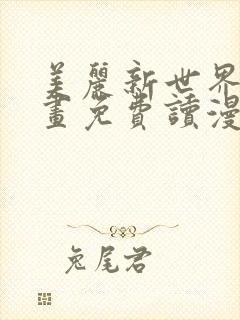 美麗新世界
畫免費讀漫
兔尾君